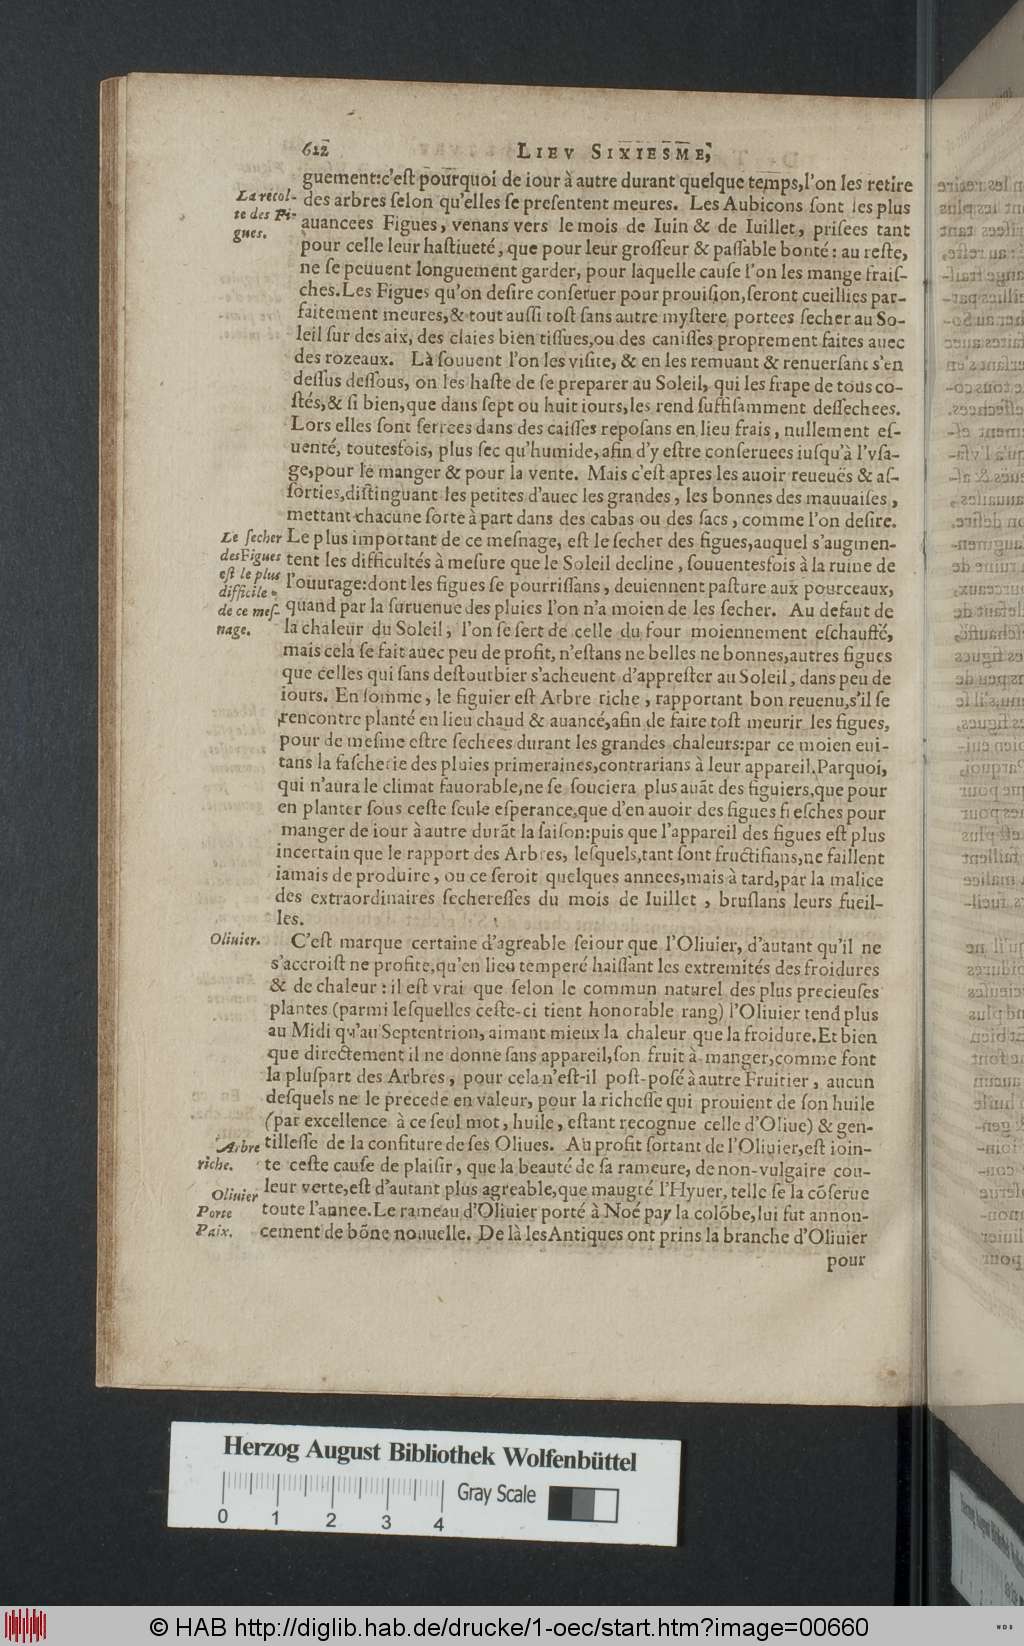 612 LIEV SIXIESME,
guement:c'eſt pourquoi de iour à autre durant quelque temps,l'on les retire
La recol-
te des Fi-
gues.
des arbres ſelon qu'elles ſe preſentent meures. Les Aubicons ſont les plus
auancees Figues, venans vers le mois de Iuin & de Iuillet, priſees tant
pour celle leur haſtiueté, que pour leur groſſeur & paſſable bonté: au reſte,
ne ſe peuuent longuement garder, pour laquelle cauſe l'on les mange fraiſ-
ches.Les Figues qu'on deſire conſeruer pour prouiſion,ſeront cueillies par-
faitement meures,& tout auſſi toſt ſans autre myſtere, portees ſecher au So-
leil ſur des aix, des claies bien tiſſues,ou des caniſſes proprement faites auec
des rozeaux. Là ſouuent l'on les viſite, & en les remuant & renuerſant s'en
deſſus deſſous, on les haſte de ſe preparer au Soleil, qui les frape de tous co-
ſtés,& ſi bien,que dans ſept ou huit iours,les rend ſuffiſamment deſſechees.
Lors elles ſont ſerrees dans des caiſſes repoſans en lieu frais, nullement eſ-
uenté, toutesfois, plus ſec qu'humide, afin d'y eſtre conſeruees iuſqu'à l'vſa-
ge,pour le manger & pour la vente. Mais c'eſt apres les auoir reueuës & aſ-
ſorties,diſtinguant les petites d'auec les grandes, les bonnes des mauuaiſes,
mettant chacune ſorte à part dans des cabas ou des ſacs, comme l'on deſire.
Le ſecher
des Figues
eſt le plus
difficile
de ce meſ-
nage.
Le plus important de ce meſnage, eſt le ſecher des figues,auquel s'augmen-
tent les difficultés à meſure que le Soleil decline, ſouuentesfois à la ruine de
l'ouurage:dont les figues ſe pourriſſans, deuiennent paſture aux pourceaux,
quand par la ſuruenue des pluies l'on n'a moien de les ſecher. Au defaut de
la chaleur du Soleil, l'on ſe ſert de celle du four moiennement eſchauffé,
mais cela ſe fait auec peu de profit, n'eſtans ne belles ne bonnes,autres figues
que celles qui ſans deſtourbier s'acheuent d'appreſter au Soleil, dans peu de
iours. En ſomme, le figuier eſt Arbre riche, rapportant bon reuenu,s'il ſe
rencontre planté en lieu chaud & auancé,afin de faire toſt meurir les figues,
pour de meſme eſtre ſechees durant les grandes chaleurs:par ce moien eui-
tans la faſcherie des pluies primeraines,contrarians à leur appareil.Parquoi,
qui n'aura le climat fauorable,ne ſe ſouciera plus auāt des figuiers,que pour
en planter ſous ceſte ſeule eſperance,que d'en auoir des figues freſches pour
manger de iour à autre durāt la ſaiſon:puis que l'appareil des figues eſt plus
incertain que le rapport des Arbres, leſquels,tant ſont fructifians,ne faillent
iamais de produire, ou ce ſeroit quelques annees,mais à tard,par la malice
des extraordinaires ſechereſſes du mois de Iuillet, bruſlans leurs fueil-
les.
Oliuier.
C'eſt marque certaine d'agreable ſeiour que l'Oliuier, d'autant qu'il ne
s'accroiſt ne profite,qu'en lieu temperé haiſſant les extremités des froidures
& de chaleur: il eſt vrai que ſelon le commun naturel des plus precieuſes
plantes (parmi leſquelles ceſte-ci tient honorable rang) l'Oliuier tend plus
au Midi qu'au Septentrion, aimant mieux la chaleur que la froidure.Et bien
que directement il ne donne ſans appareil,ſon fruit à manger,comme font
la pluſpart des Arbres, pour cela n'eſt-il poſt-poſé à autre Fruitier, aucun
deſquels ne le precede en valeur, pour la richeſſe qui prouient de ſon huile
(par excellence à ce ſeul mot, huile, eſtant recognue celle d'Oliue) & gen-
Arbre
riche.
tilleſſe de la confiture de ſes Oliues. Au profit ſortant de l'Oliuier,eſt ioin-
te ceſte cauſe de plaiſir, que la beauté de ſa rameure, de non-vulgaire cou-
Oliuier
Porte
Paix.
leur verte,eſt d'autant plus agreable,que maugré l'Hyuer, telle ſe la cōſerue
toute l'annee.Le rameau d'Oliuier porté à Noé par la colōbe,lui fut annon-
cement de bōne nouuelle. De là les Antiques ont prins la branche d'Oliuier
pour
Herzog August Bibliothek Wolfenbüttel
0 1 2 3 4 Gray Scale
© HAB http://diglib.hab.de/drucke/1-oec/start.htm?image=00660